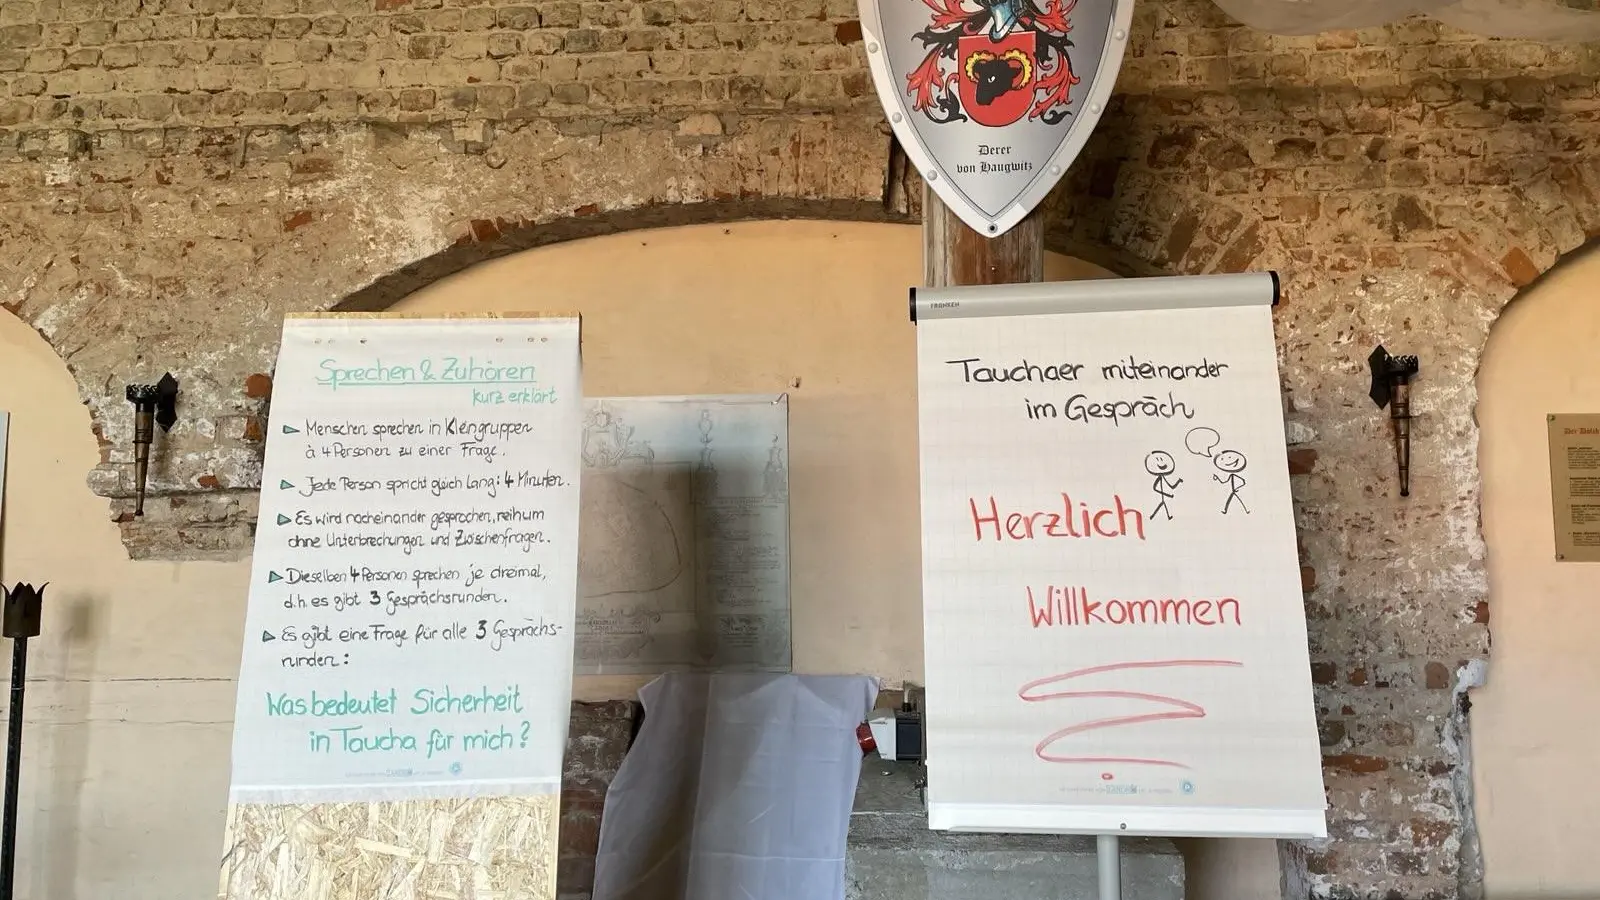 Derer
von Haugwitz
Sprechen & Zuhören
kurz erklärt
Menschen sprechen in Kleingruppen
à 4 Personen zu einer Frage.
Jede Person spricht gleich lang: 4 Minuten.
Es wird nacheinander gesprochen, reihum
ohne Unterbrechungen und Zwischenfragen.
Dieselben 4 Personen sprechen je dreimal,
d.h. es gibt 3 Gesprächsrunden.
Es gibt eine Frage für alle 3 Gesprächs-
runden:
Was bedeutet Sicherheit
in Taucha für mich?
FRANKEN
Tauchaer miteinander
im Gespräch
Herzlich
Willkommen